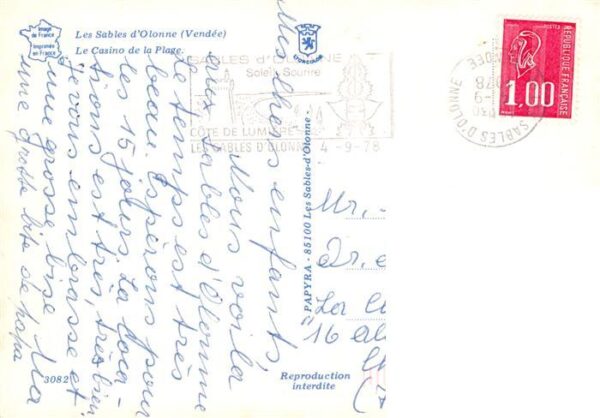 Image
de France
Imprimée
en France
Les Sables d'Olonne (Vendée)
Le Casino de la Plage.
SABLES d'OLONNE
Soleil Sourire
CÔTE DE LUMIÈRE
LES SABLES D'OLONNE 4-9-78
RÉPUBLIQUE FRANÇAISE
POSTES
1,00
SABLES D'OLONNE
VENDEE
Mes chers enfants,
Nous voilà
aux Sables d'Olonne
Le temps est très
beau. Espérons pour
les 15 jours. La loca-
tions est très, très bien
je vous embrasse et
une grosse bise
une grosse bise de papa
PAPYRA - 85100 Les Sables-d'Olonne
Mr.
La
16
3082
Reproduction
interdite